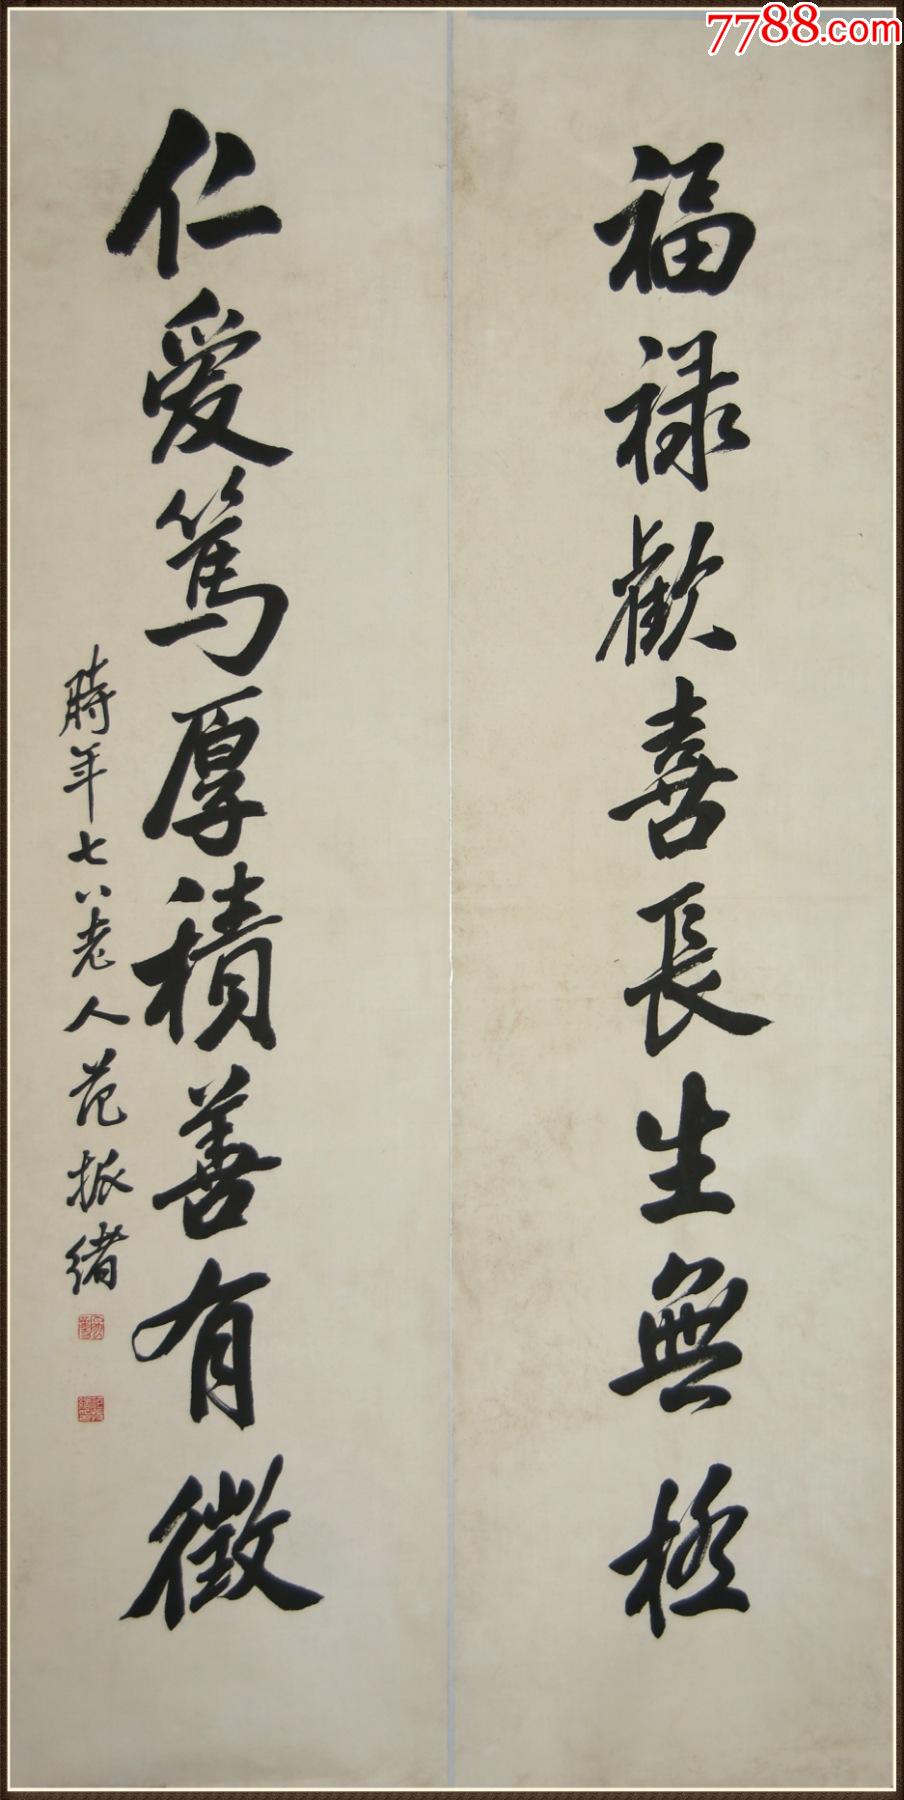 7788.com
福禄歡喜長生無極
仁爱篤厚積善有徵
時年七八老人范振緒